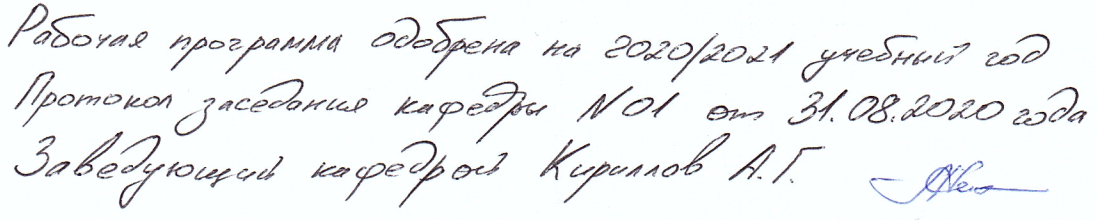 Рабочая программа одобрена на 2020/2021 учебный год
Протокол заседания кафедры N01 от 31.08.2020 года
Заведующий кафедрой Кириллов А.Г.